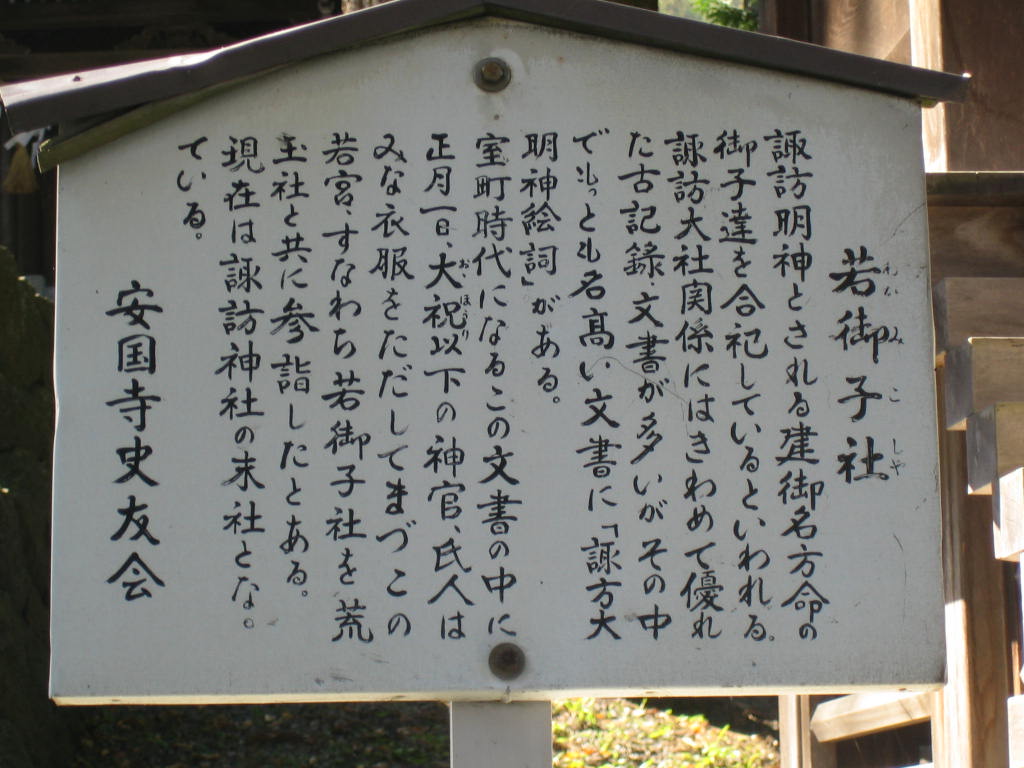 若御子社
わかみこしや
諏訪明神とされる建御名方命の
御子達を合祀しているといわれる。
諏訪大社関係にはきわめて優れ
た古記録、文書が多いがその中
でもっとも名高い文書に「諏方大
明神絵詞」がある。
室町時代になるこの文書の中に
正月一日、大祝以下の神官、氏人は
おゝほうり
みな衣服をただしてまづこの
若宮、すなわち若御子社を荒
玉社と共に参詣したとある。
現在は諏訪神社の末社とな。
ている。
安国寺史友会